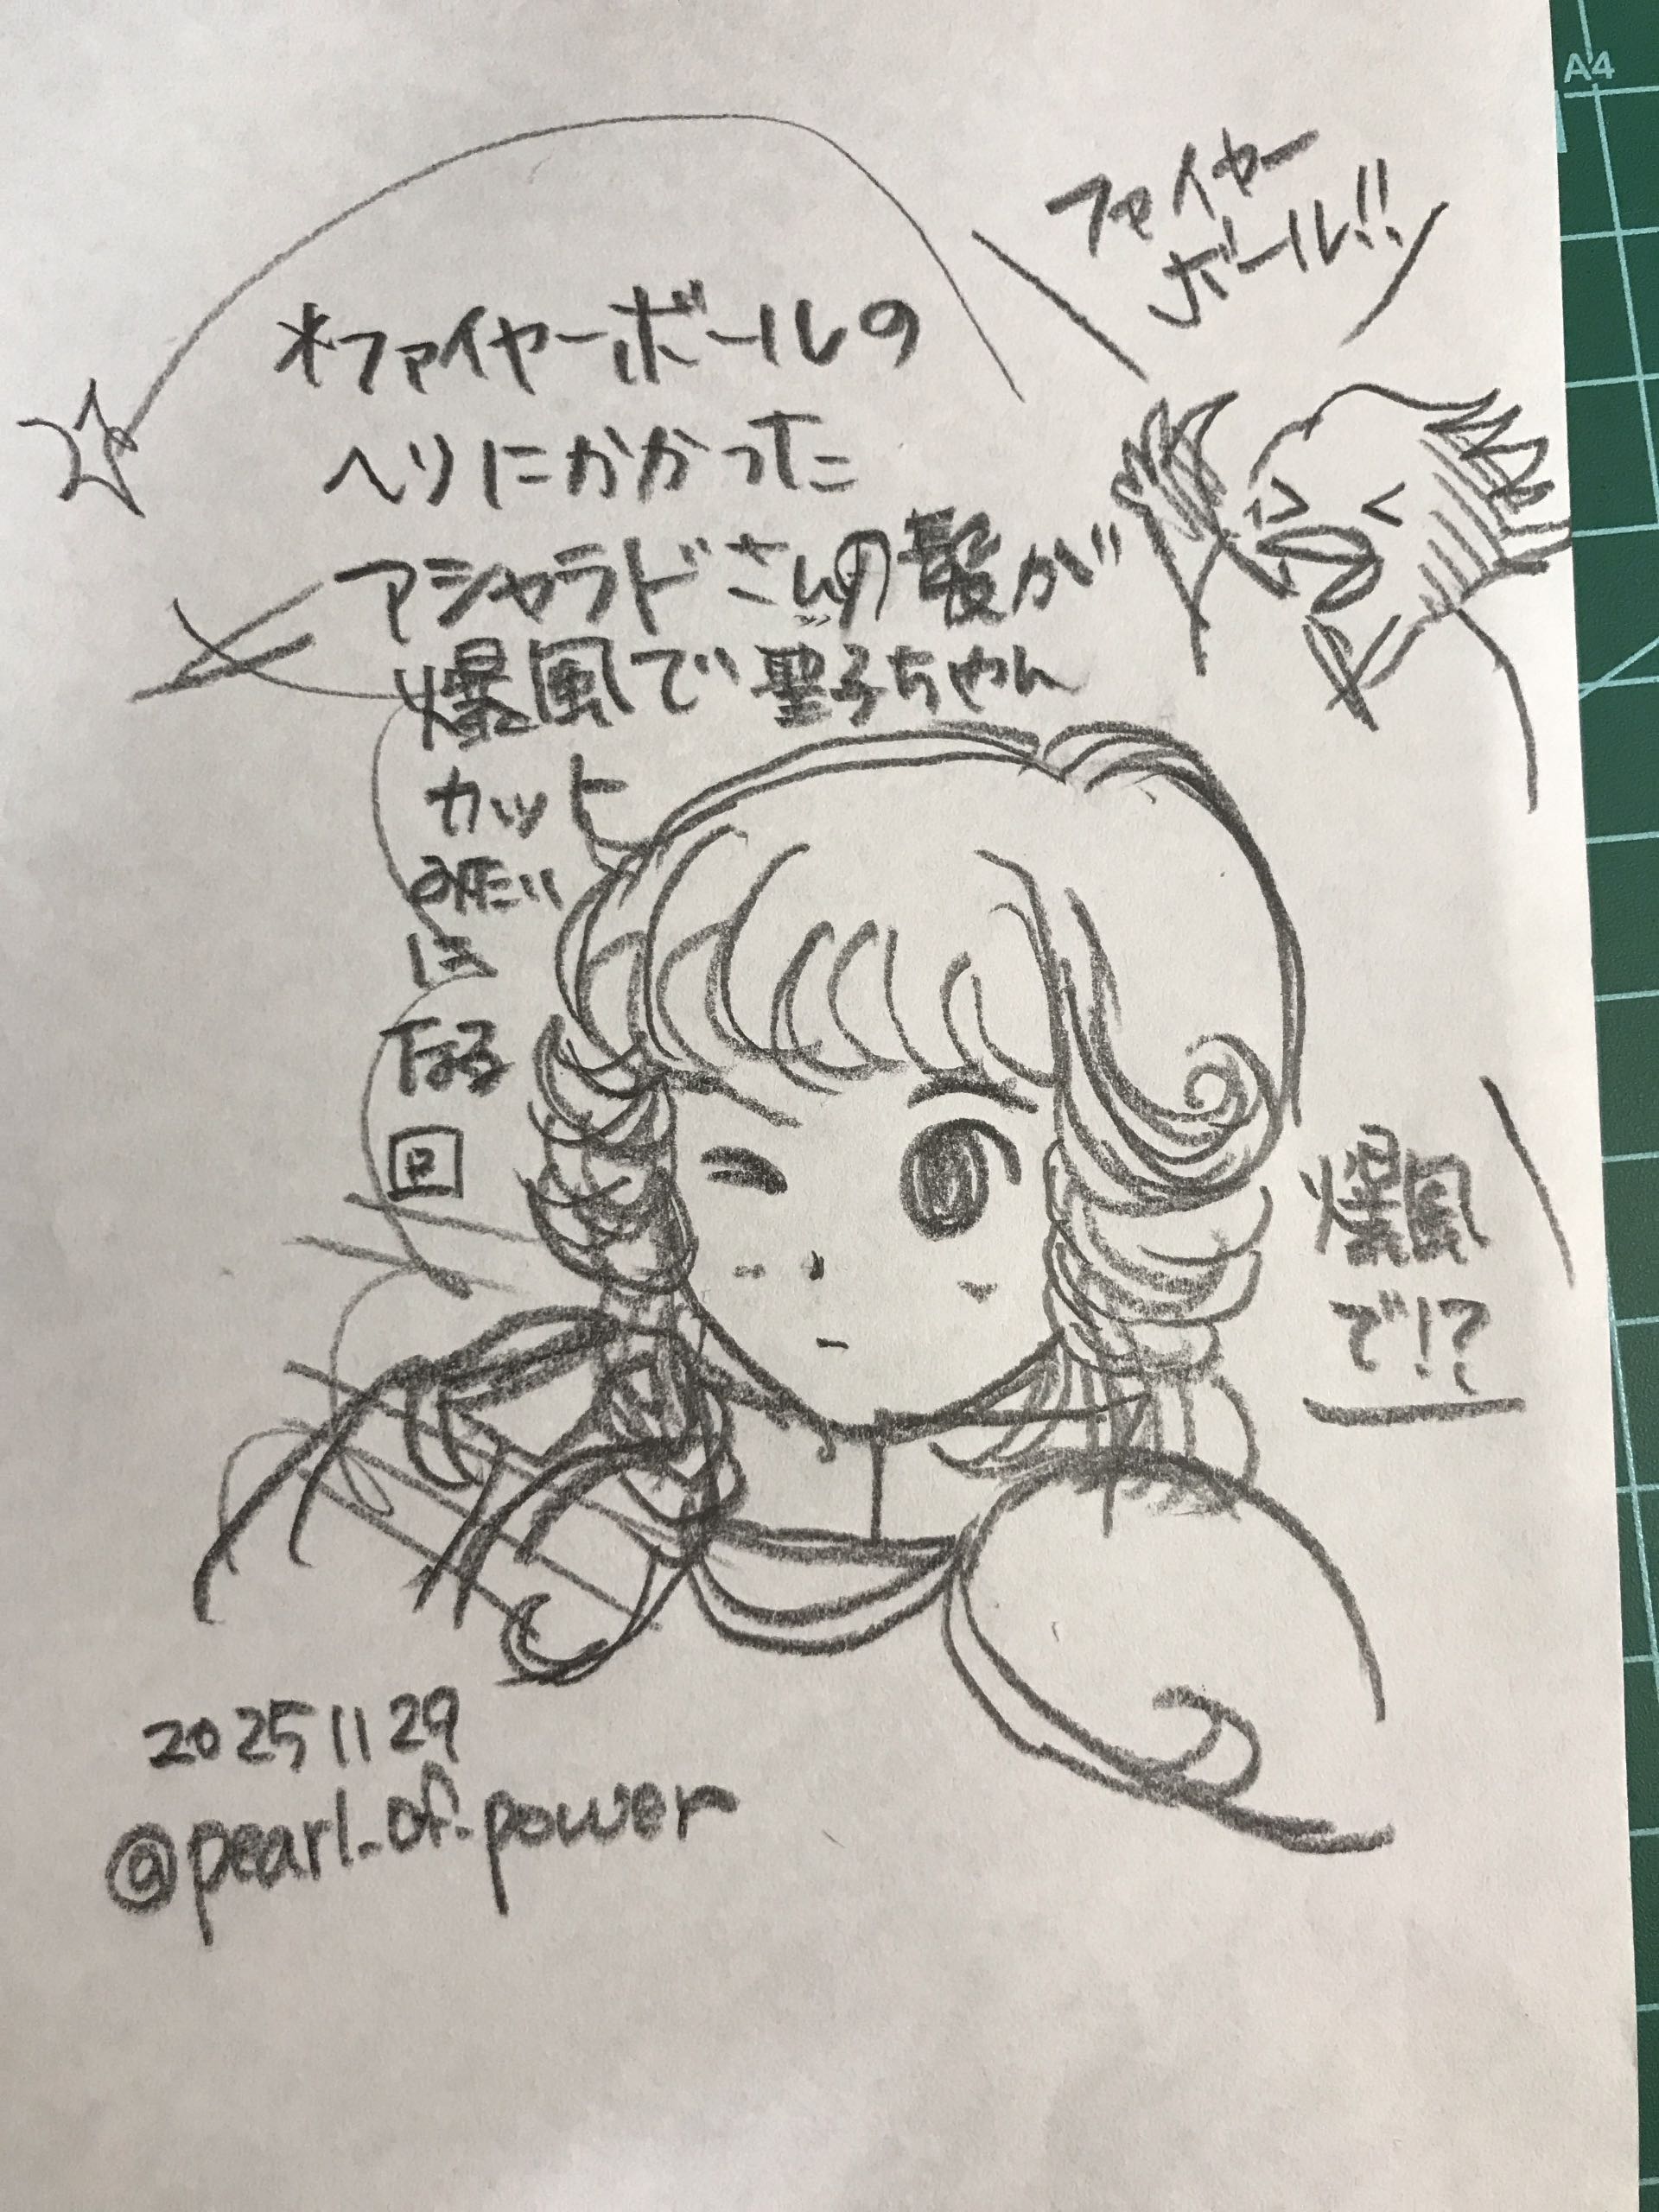 ファイヤー
ボール!!
*ファイヤーボールの
へりにかかった
アシャラドさんの髪が
爆風で聖子ちゃん
カット
みたい
に
なる
回
爆風
で!?
20251129
@pearl_of_power
A4